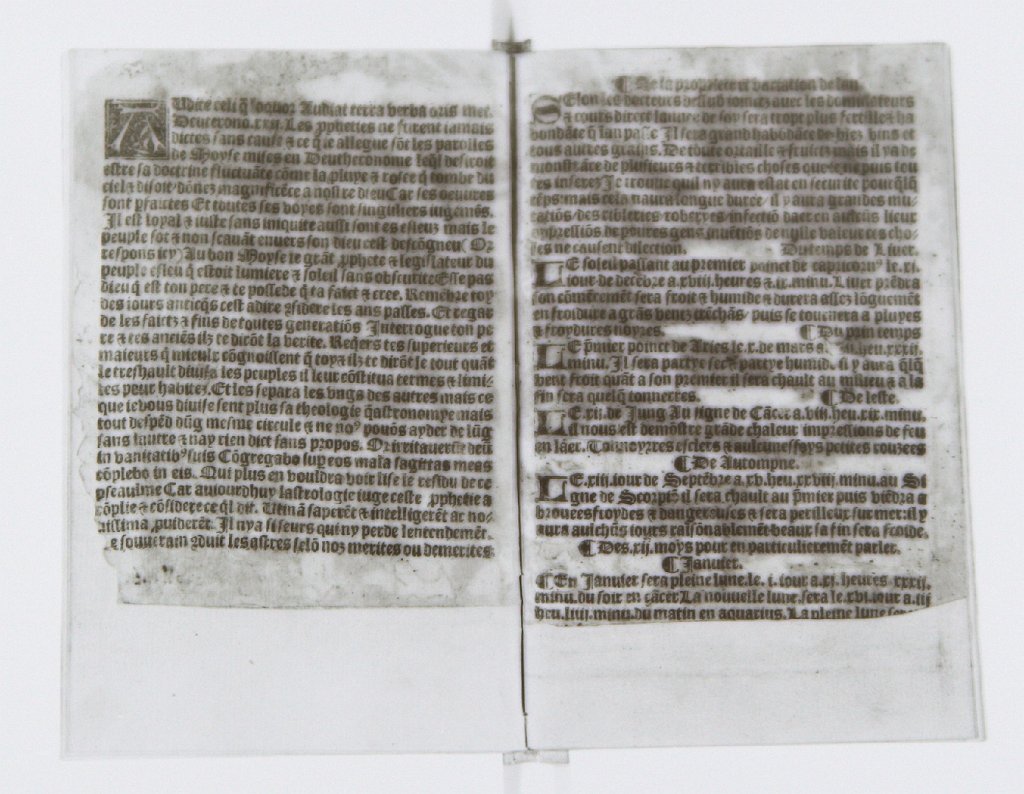 AUdite celi q̃ loquor Audiat terra verba oris mei
Deuterono.xxxii. Les ꝓphettes ne furent iamais
dictes sans cause ⁊ ce q̃ ie allegue sõt les parolles
de Moyse mises en Deutheronome
estre sa doctrine fluctuãte cõme la pluye ⁊ rosee q̃ tombe du
ciel ⁊ disoit/dõnez magnificẽce a nostre dieu Car ses oeuures
sont ꝑfaites Et toutes ses voyes sont singuliers iugemẽs.
Il est loyal ⁊ iuste sans iniquite aussi sont es esleuz mais le
peuple sot ⁊ non scauãt enuers son dieu est descõgneu (Or
respons icy) Au bon Moyse le grãt ꝓphete ⁊ legislateur du
peuple esleu q̃ estoit lumiere ⁊ soleil sans obscurite Esse pas
dieu q̃ est ton pere ⁊ te possede q̃ ta faict ⁊ cree. Remẽbre toy
des iours anticq̃s cest adire ꝯsidere les ans passes. Et regar
de les faictz ⁊ fins de toutes generatiõs Interrogue ton pe
re ⁊ tes anciẽs ilz te dirõt la verite. Req̃ers tes superieurs et
maieurs q̃ mieulx cõgnoissent q̃ toy ⁊ ilz te dirõt le tout quãt
le treshault diuisa les peuples il leur cõstitua termes ⁊ limi-
tes pour habiter. Et les separa les vngs des autres mais ce
que ie vous diuise sent plus sa theologie q̃ astronomye mais
tout despẽd dũg mesme circule ⁊ ne noꝰ pouõs ayder de lũg
sans lautre ⁊ nay rien dict sans propos. Or irritauerũt deũ
in vanitatibꝰ suis Cõgregabo super eos mala sagittas meas
cõplebo in eis. Qui plus en vouldra voir lise le residu de ce
pseaulme Car aujourdhuy lastrologie iuge ceste ꝓphetie a
cõplie ⁊ cõsidere ce q̃l dit. Utinã saperẽt ⁊ intelligerẽt ac no-
uissima ꝓuiderẽt. Il ny a si seurs qui ny perde lentendemẽt.
⁊ souuerain ꝯduit les astres selõ noz merites ou demerites.
¶ De la propriete et variation de lan.
SElon les docteurs
⁊ tous dirent lannee de soy sera trope plus fertille ⁊ ha
bondãte q̃ lan passe Il sera grand habõdãce de blez vins et
tous autres grains. De toute voiaille ⁊ fruictz mais il ya de
monstrãce de plusieurs ⁊ terribles choses que ie ne puis tou
tes inserez Je trouue quil ny aura estat en securite pour q̃lq̃
tẽps mais cela naura longue duree/ il y aura grandes mu-
tatiõs/des ribleries roberyes infectiõ daer en aucũs lieux
opressiõs de poures gens
ses ne causent dilection. Du temps de Liuer.
LE soleil passant au premier poinct de capricornꝰ le.xi.
iour de decẽbre a.xviii.heures ⁊.ix.minu. Liuer prẽdra
son cõmẽcement sera froit ⁊ humide ⁊ durera assez lõguemẽt
en froidure a grãs ventz trẽchãs/ puis se tournera a pluyes
⁊ froydures noyres. ¶ Du prin temps
LE p̃mier poinct de Aries le.x.de mars a heu.xxxii.
minu. Il sera partye sec ⁊ partye humid. si y aura q̃lq̃
vent froit quãt a son premier il sera chault au milieu ⁊ a la
fin sera quelq̃ tonnerres. ¶ De leste.
LE.xii.de Jung Au signe de Cãcer a.viii.heu.xix.minu.
il nous est demõstre grãde chaleur impressions de feu
en laer. Tonnoyrres esclers ⁊ aulcuneffoys petites rousees
¶ De Autompne.
LE.xiii.iour de Septẽbre a.xv.heu.xxviii.minu.au Si
gne de Scorpiõ il sera chault au p̃mier puis viẽdra a
brouees froydes ⁊ dangereuses ⁊ sera perilleux sur mer:il y
aura aulchũs iours raisõnablemẽt beaux sa fin sera froide.
¶ Des.xii.moys pour en particulierement parler.
¶ Januier.
¶ En Januier sera pleine lune.le.i.iour a.xi.heures.xxxii.
minu.du soir en cãcer La nouuelle lune.sera le.xvi.iour a.iii
heu.liiii.minu.du matin en aquarius. La pleine lune sera